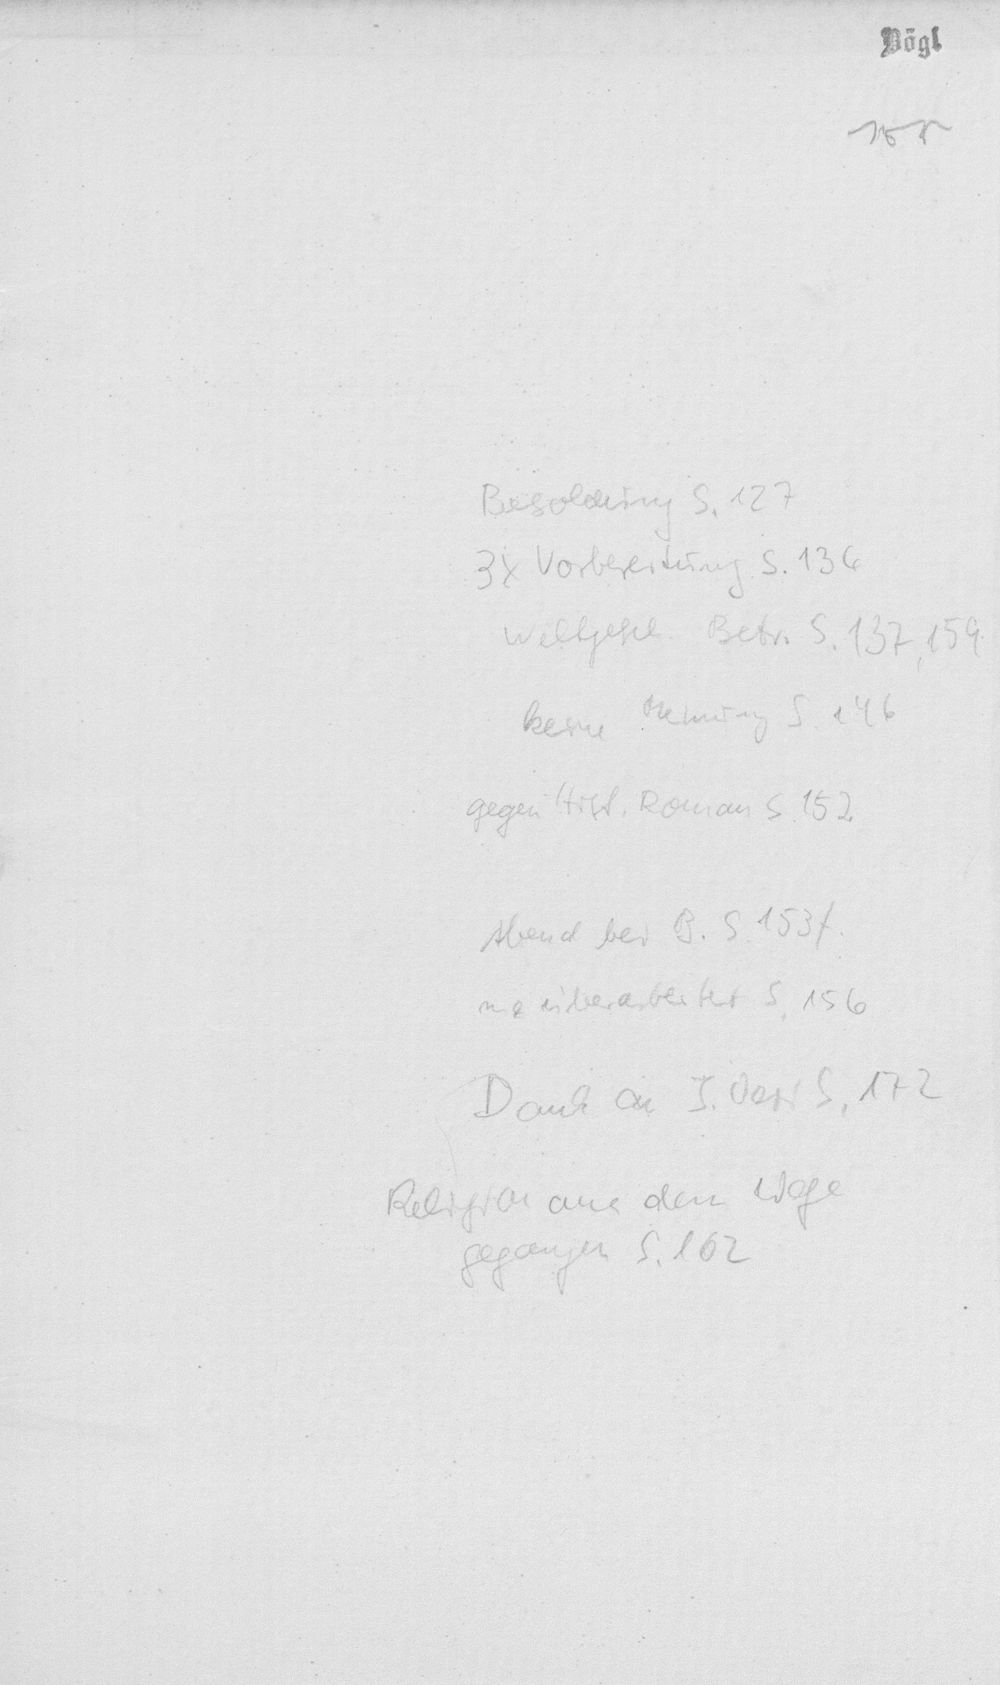 Vögl
Besoldung S. 127
3x Vorbereitung S. 136
Weltgesch. Betr. S. 137, 159
keine Meinung S. 146
gegen Hist. Roman S. 152
Abend bei B. S. 153f.
nie überarbeitet S. 156
Dank an J. S. 172
Religion aus dem Wege
gegangen S. 162